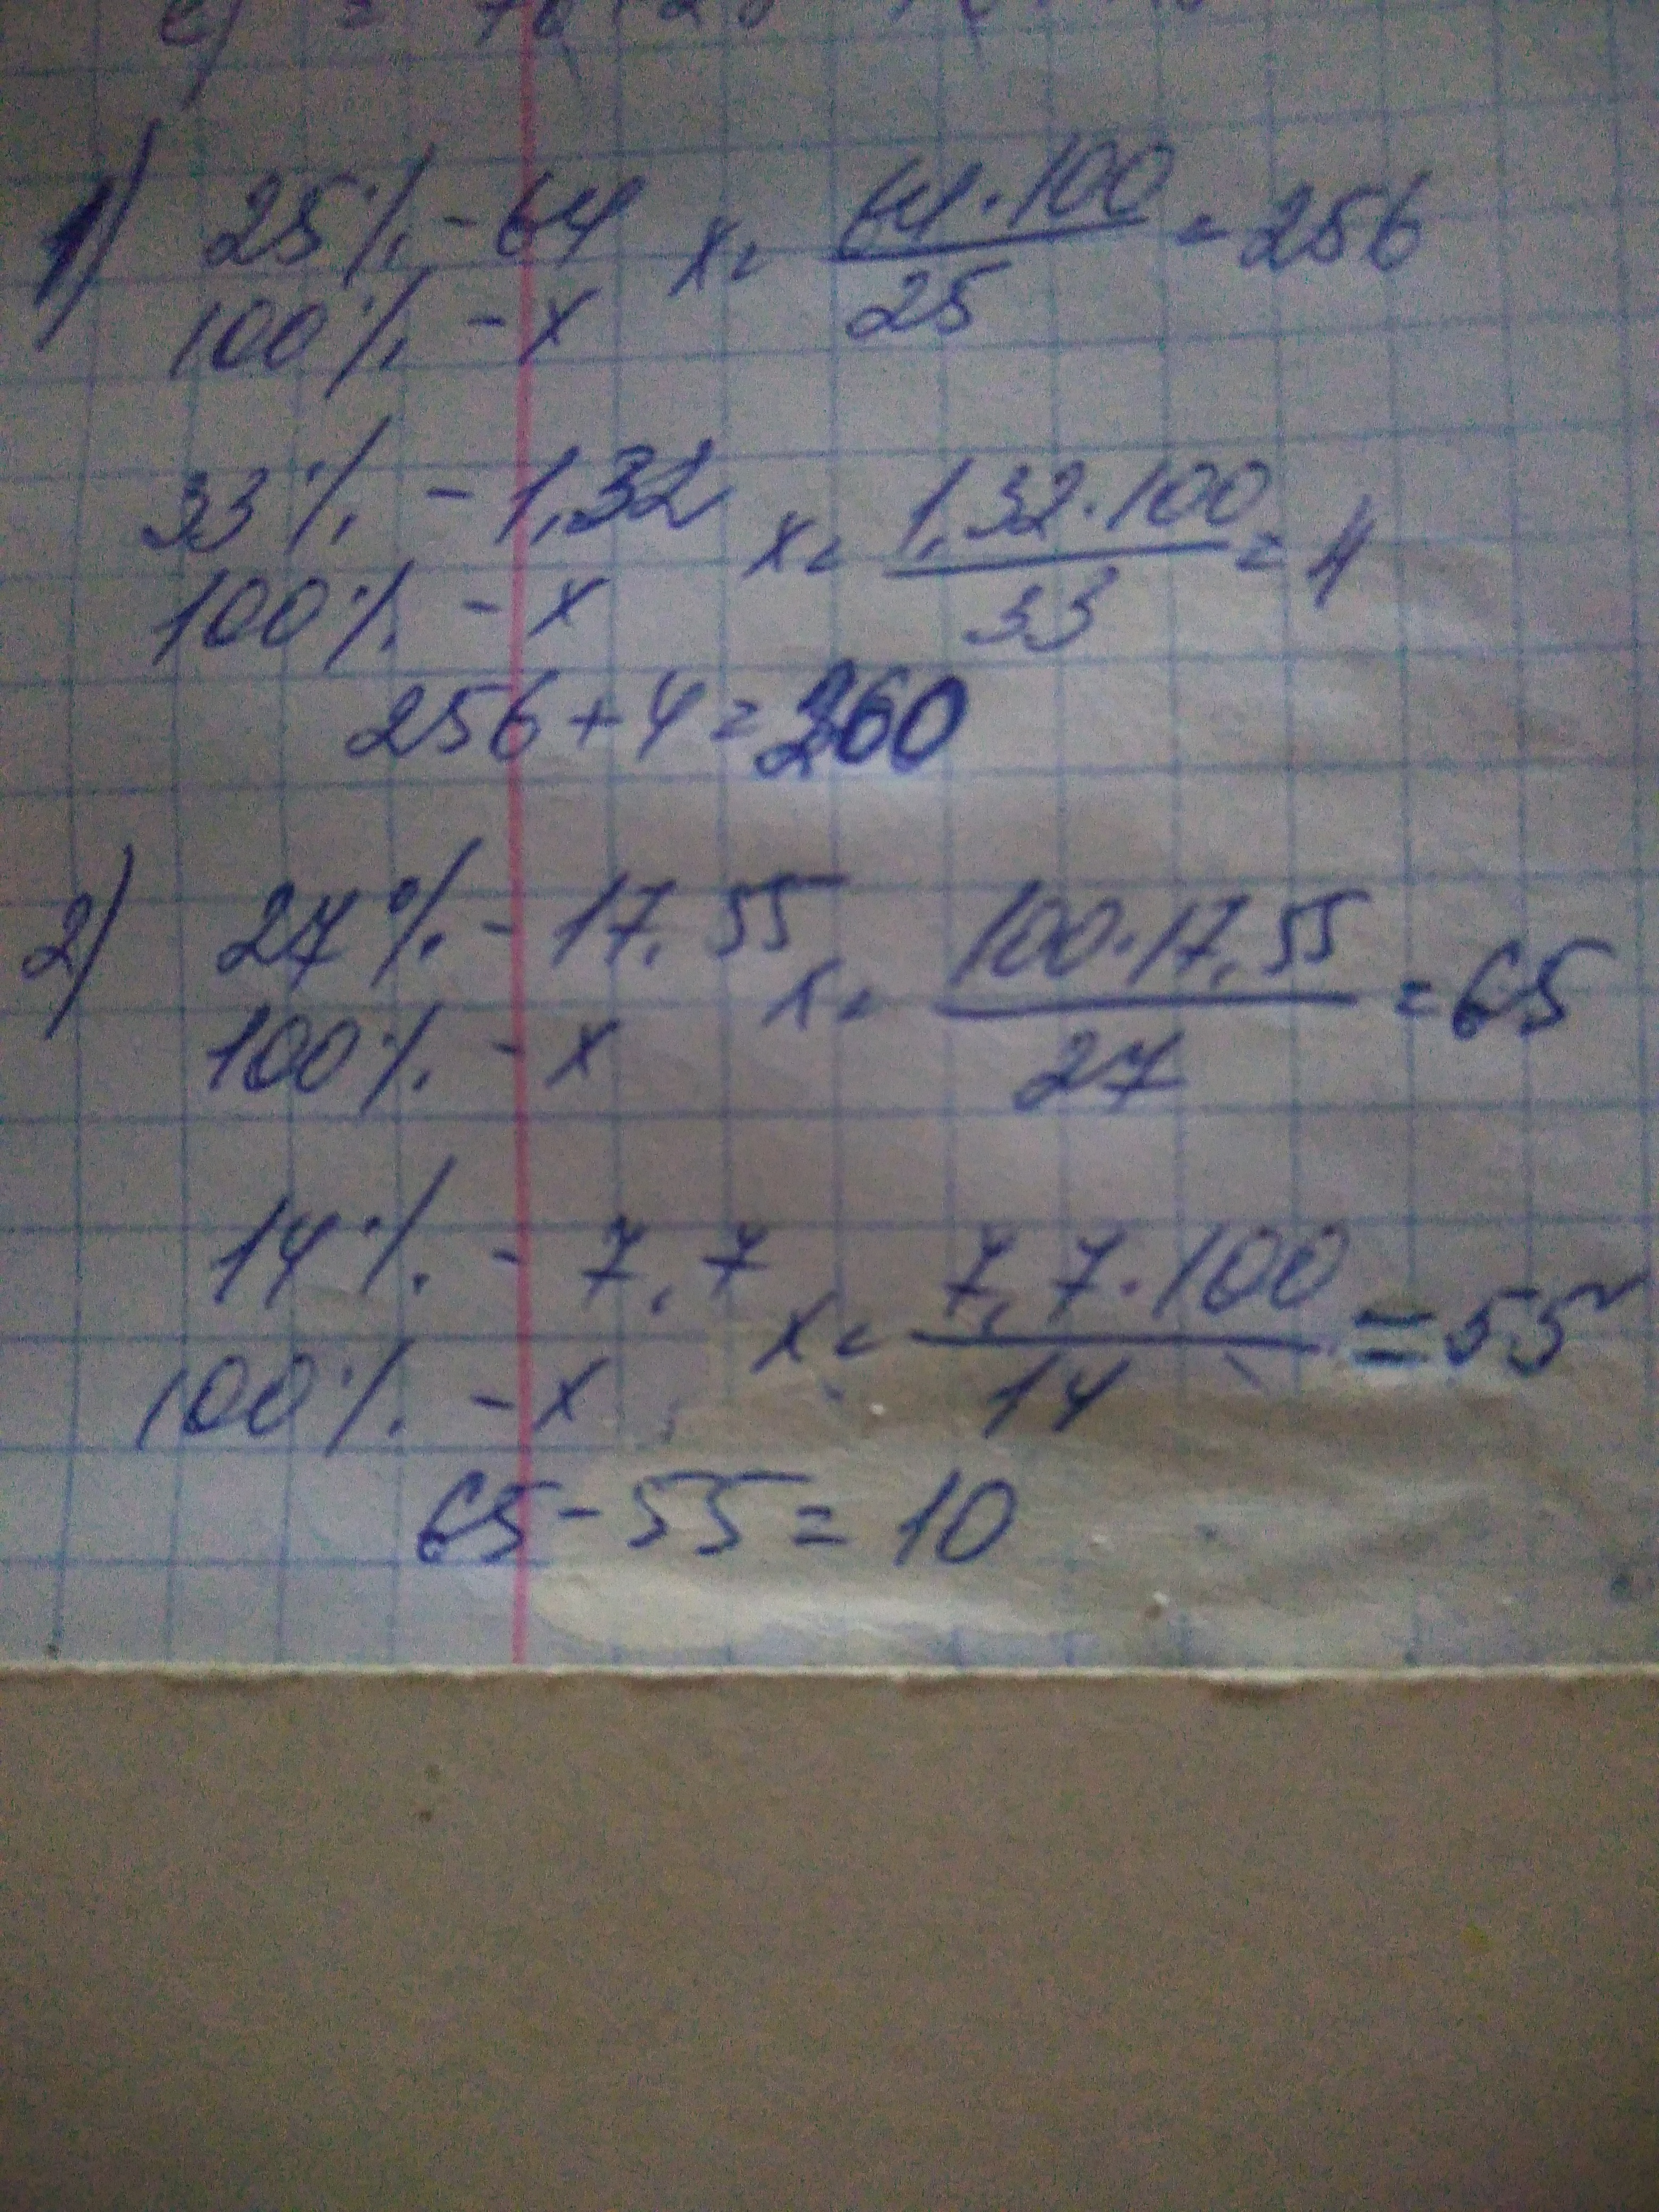 1) 25% - 64 x = 64·100/25 = 256
100% - x
33% - 1,32 x = 1,32·100/33 = 4
100% - x
256 + 4 = 260
2) 27% - 17,55 x = 100·17,55/27 = 65
100% - x
14% - 7,7 x = 7,7·100/14 = 55
100% - x
65 - 55 = 10